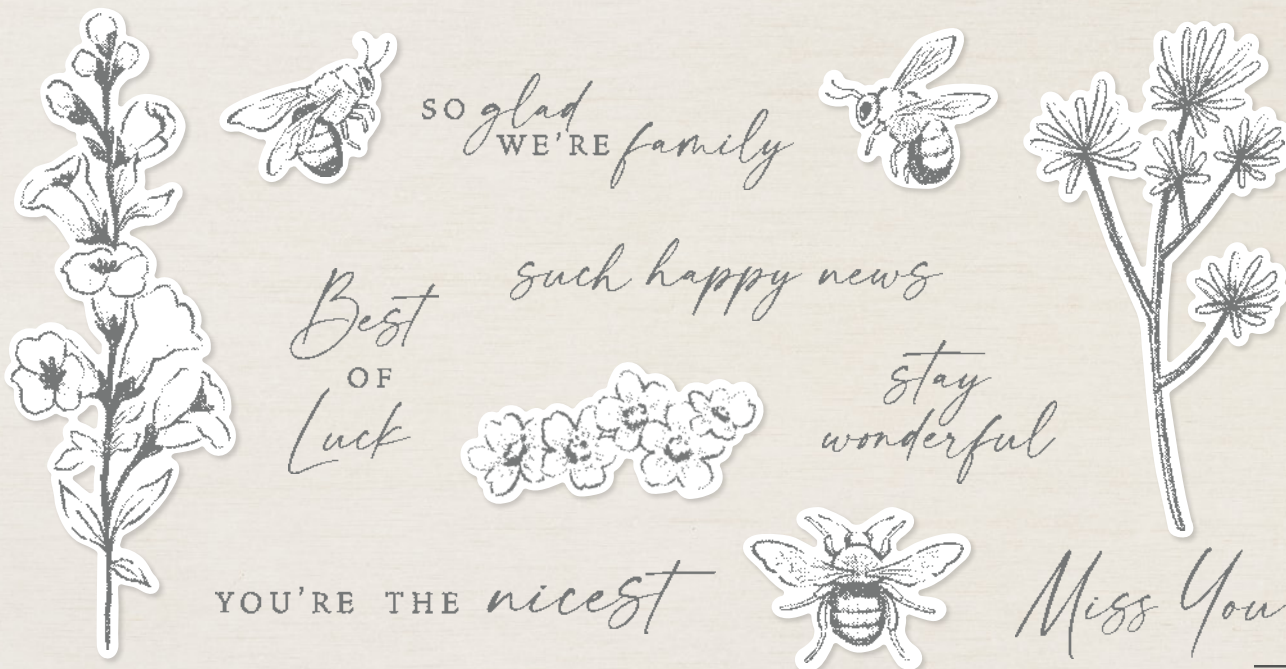 SO glad
WE'RE family
such happy news
Best
OF
Luck
stay
wonderful
YOU'RE THE nicest
Miss You